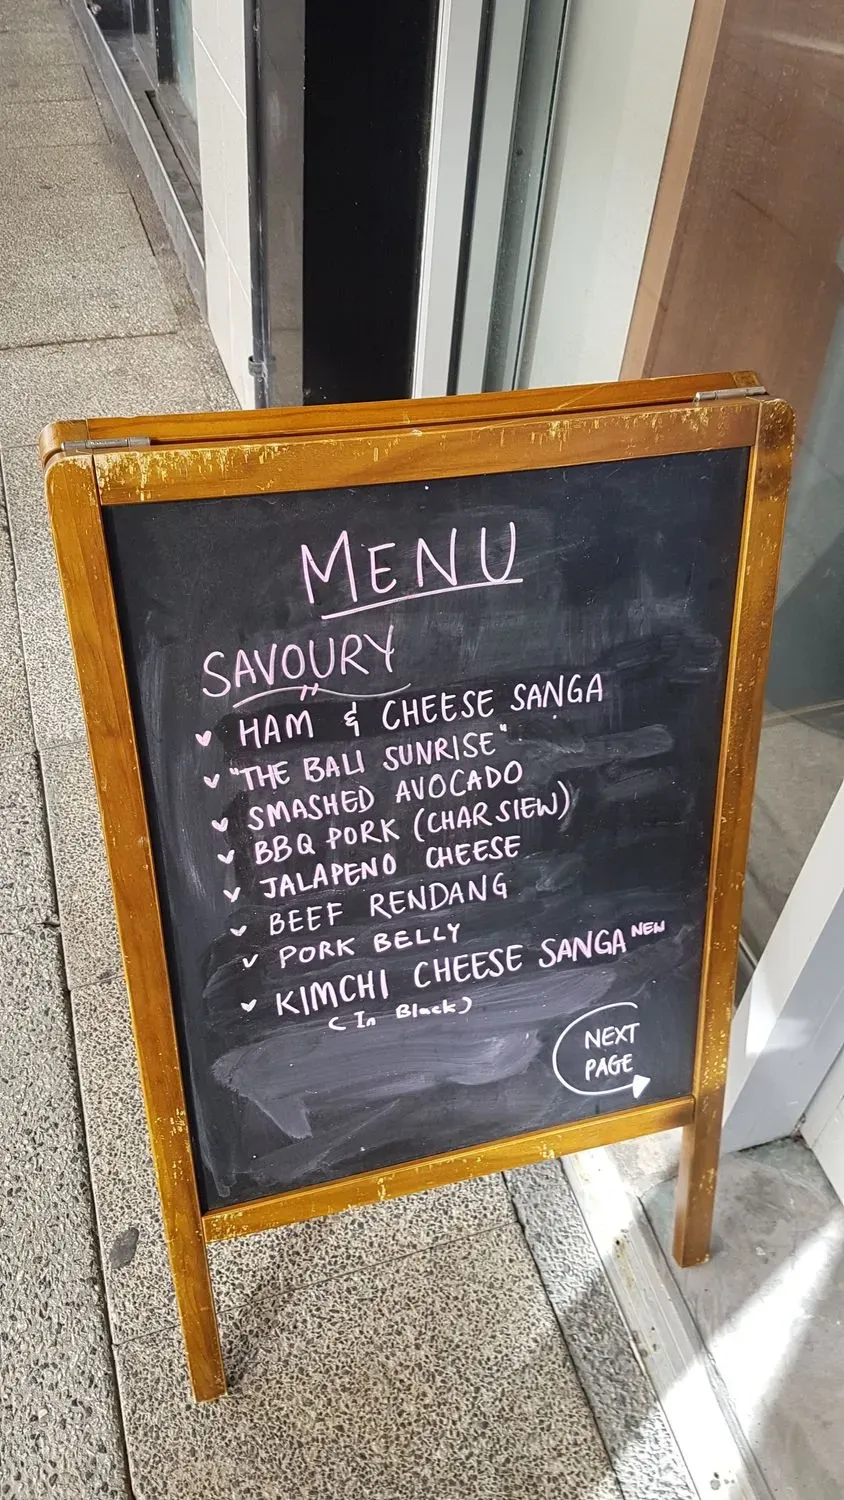 MENU
SAVOURY
HAM & CHEESE SANGA
"THE BALI SUNRISE"
SMASHED AVOCADO
BBQ PORK (CHAR SIEW)
JALAPENO CHEESE
BEEF RENDANG
PORK BELLY
KIMCHI CHEESE SANGA NEW
(In Black)
NEXT
PAGE